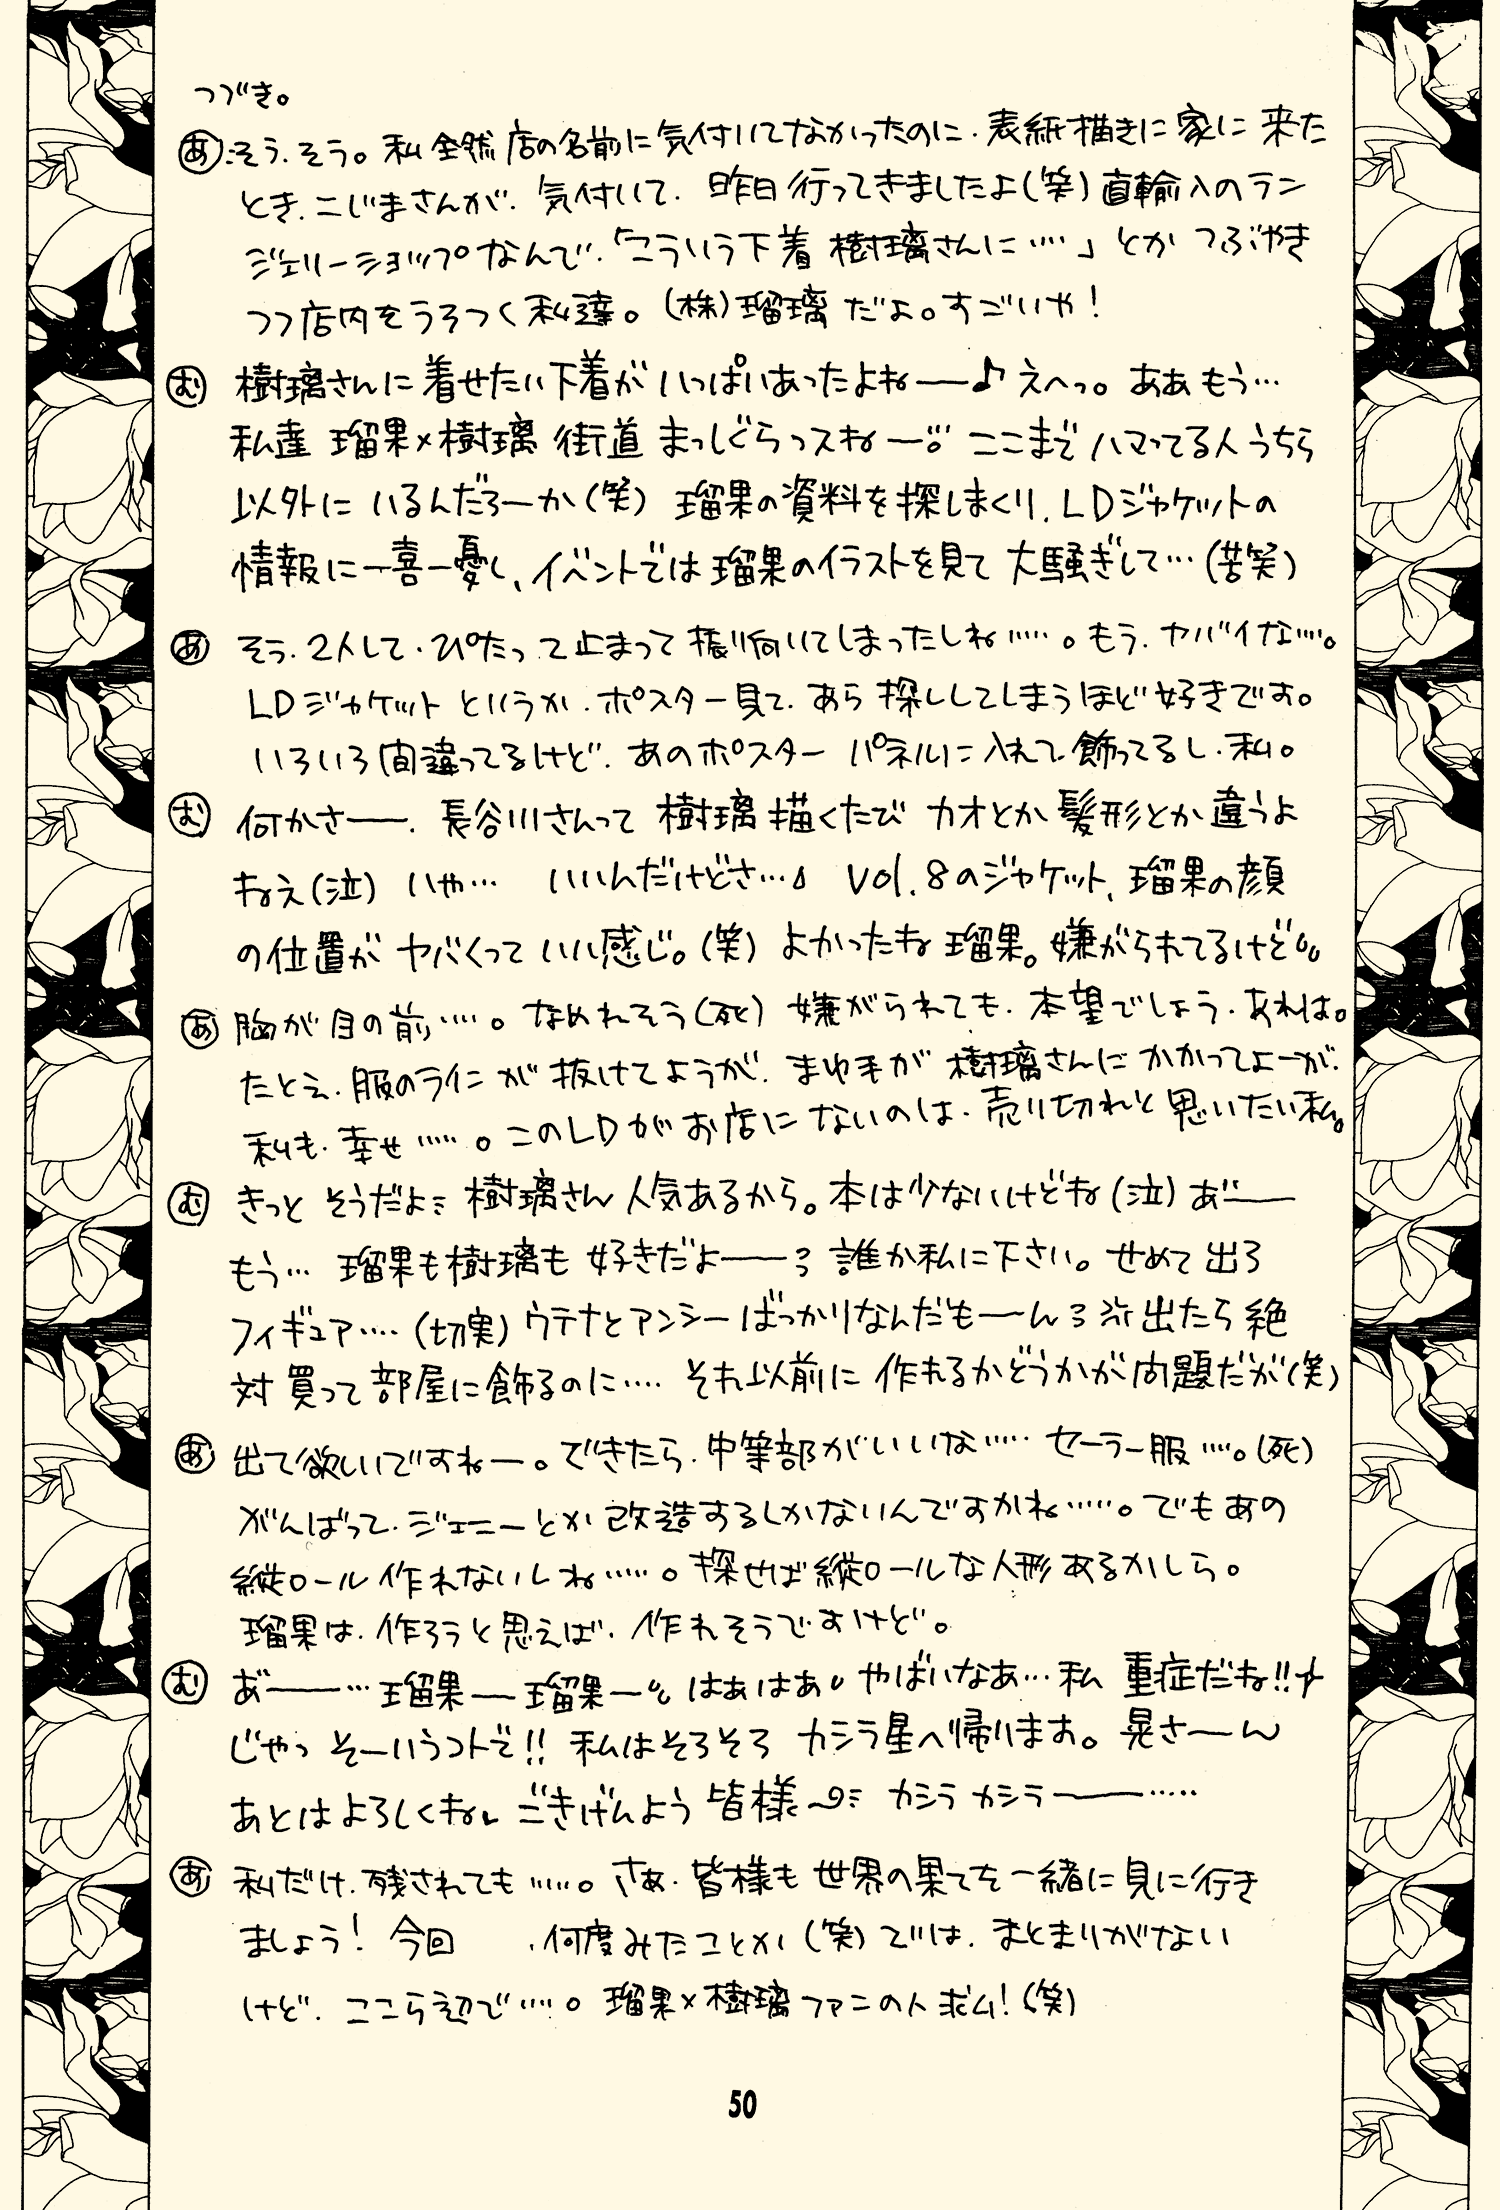 つづき。
あ:そう、そう。私全然店の名前に気付いてなかったのに、表紙描きに家に来た
とき、こじまさんが、気付いて、昨日行ってきましたよ(笑)直輸入のラン
ジェリーショップなんで、「こういう下着樹璃さんに‥‥」とかつぶやき
つつ店内をうろつく私達。(株)瑠璃だよ。すごいや!
む 樹璃さんに着せたい下着がいっぱいあったよねー♪えへっ。ああもう…
私達瑠果×樹璃街道まっしぐらっスねー。ここまでハマってる人うちら
以外にいるんだろーか(笑)瑠果の資料を探しまくり、LDジャケットの
情報に一喜一憂し、イベントでは瑠果のイラストを見て大騒ぎして…(苦笑)
あ そう、2人して、ぴたって止まって振り向いてしまったしね‥‥。もう、ヤバイな‥‥。
LDジャケットというか、ポスター見て、あら探ししてしまうほど好きです。
いろいろ間違ってるけど、あのポスターパネルに入れて飾ってるし、私。
む 何かさー、長谷川さんって樹璃描くたびカオとか髪形とか違うよ
ねえ(泣)いや… いいんだけどさ… Vol.8のジャケット、瑠果の顔
の位置がヤバくっていい感じ。(笑)よかったね瑠果。嫌がられてるけど
あ 胸が目の前‥‥。なめれそう(死)嫌がられても、本望でしょう、あれは。
たとえ、服のラインが抜けてようが、まゆ毛が樹璃さんにかかってよーが、
私も、幸せ‥‥。このLDがお店にないのは、売り切れと思いたい私。
む きっとそうだよ 樹璃さん人気あるから。本は少ないけどね(泣)あ゛ー
もう…瑠果も樹璃も好きだよー 誰か私に下さい。せめて出ろ
フィギュア‥‥(切実)ウテナとアンシーばっかりなんだもーん 出たら絶
対買って部屋に飾るのに‥‥それ以前に作れるかどうかが問題だが(笑)
あ 出て欲しいですねー。できたら、中等部がいいな‥‥セーラー服‥‥。(死)
がんばって、ジェニーとか改造するしかないんですかね‥‥。でもあの
縦ロール作れないしね‥‥。探せば縦ロールな人形あるかしら。
瑠果は、作ろうと思えば、作れそうですけど。
む あ゛ー…瑠果ー瑠果ー。はぁはぁ。やばいなあ…私重症だね!!
じゃっそーいうコトで!!私はそろそろカシラ星へ帰ります。晃さーん
あとはよろしくね ごきげんよう皆様〜 カシラカシラー‥‥‥
あ 私だけ、残されても‥‥。さあ、皆様も世界の果てを一緒に見に行き
ましょう!今回 、何度みたことか(笑)では、まとまりがない
けど、ここら辺で‥‥。瑠果×樹璃ファンの人求ム!(笑)
50